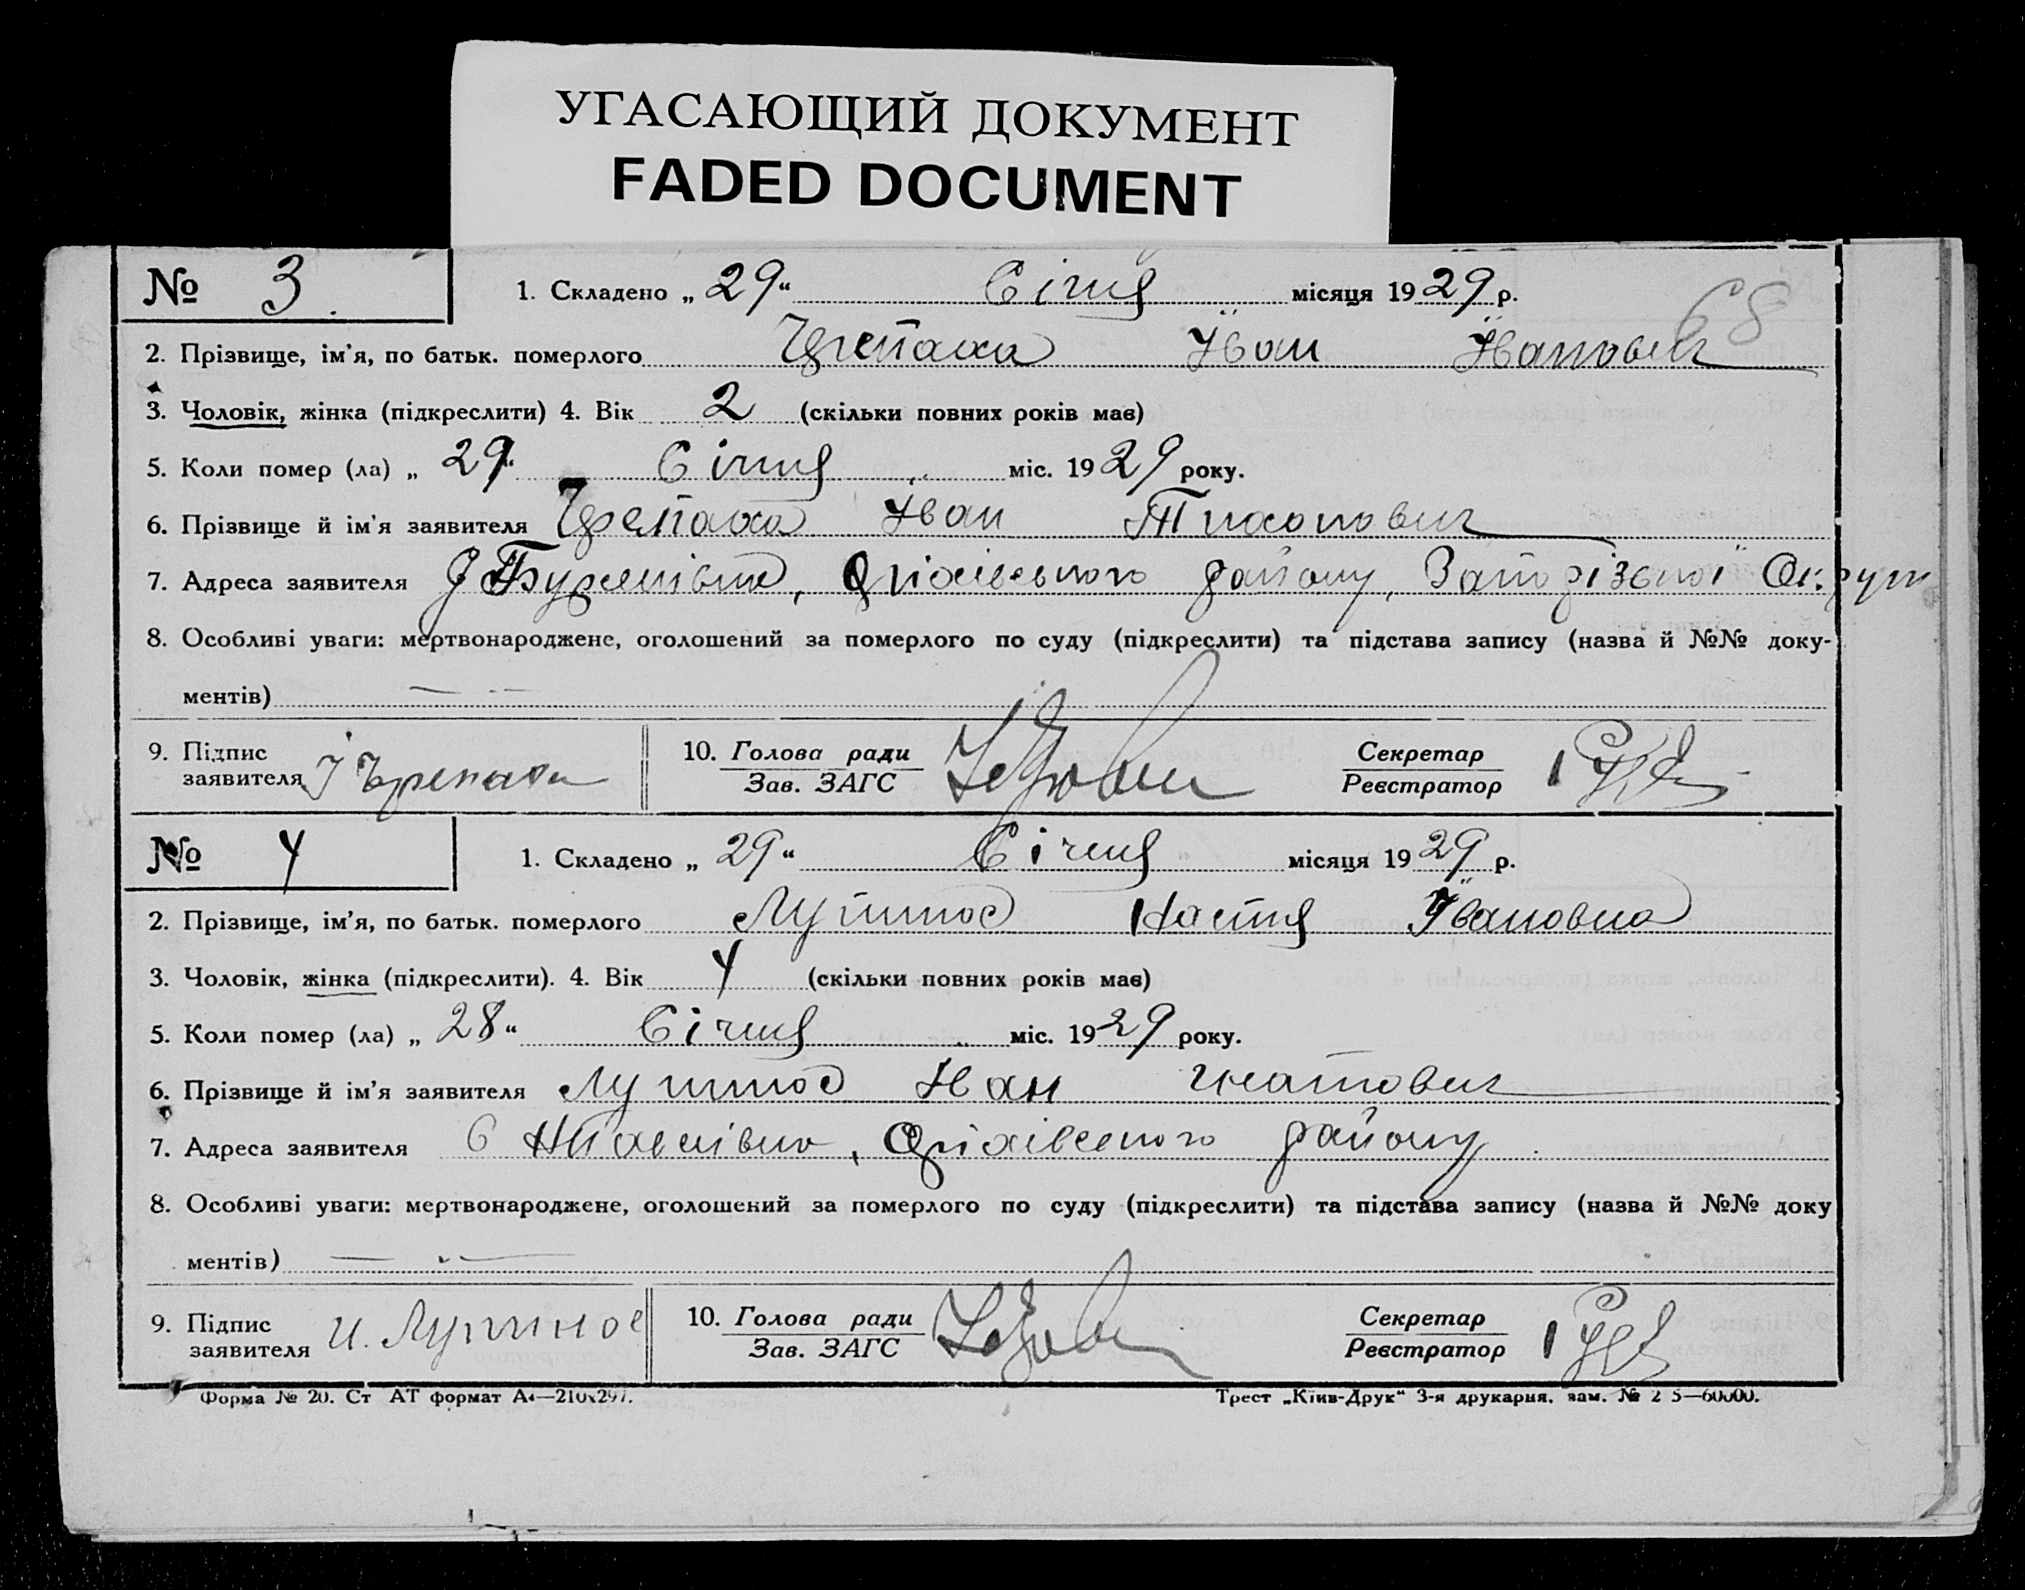 УГАСАЮЩИЙ ДОКУМЕНТ
FADED DOCUMENT
№ 3. 1. Складено „ 29 “ Січня місяця 1929 р.
68
2. Прізвище, ім'я, по батьк. померлого Черепаха Іван Іванович
3. Чоловік, жінка (підкреслити) 4. Вік 2 (скільки повних років має)
5. Коли помер (ла) „ 29 “ Січня міс. 1929 року.
6. Прізвище й ім'я заявителя Черепаха Іван Тихонович
7. Адреса заявителя Оріхівського району, Запорізької Округи
8. Особливі уваги: мертвонароджене, оголошений за померлого по суду (підкреслити) та підстава запису (назва й №№ доку-
ментів)
9. Підпис заявителя І Черепаха 10. Голова ради Секретар
Зав. ЗАГС Реєстратор
№ 4 1. Складено „ 29 “ Січня місяця 1929 р.
2. Прізвище, ім'я, по батьк. померлого Настя Івановна
3. Чоловік, жінка (підкреслити). 4. Вік 4 (скільки повних років має)
5. Коли помер (ла) „ 28 “ Січня міс. 1929 року.
6. Прізвище й ім'я заявителя Іван Гнатович
7. Адреса заявителя Оріхівського району
8. Особливі уваги: мертвонароджене, оголошений за померлого по суду (підкреслити) та підстава запису (назва й №№ доку
ментів)
9. Підпис заявителя 10. Голова ради Секретар
Зав. ЗАГС Реєстратор
Форма № 20. Ст АТ формат А4—210х297. Трест „Київ-Друк“ 3-я друкарня. зам. №